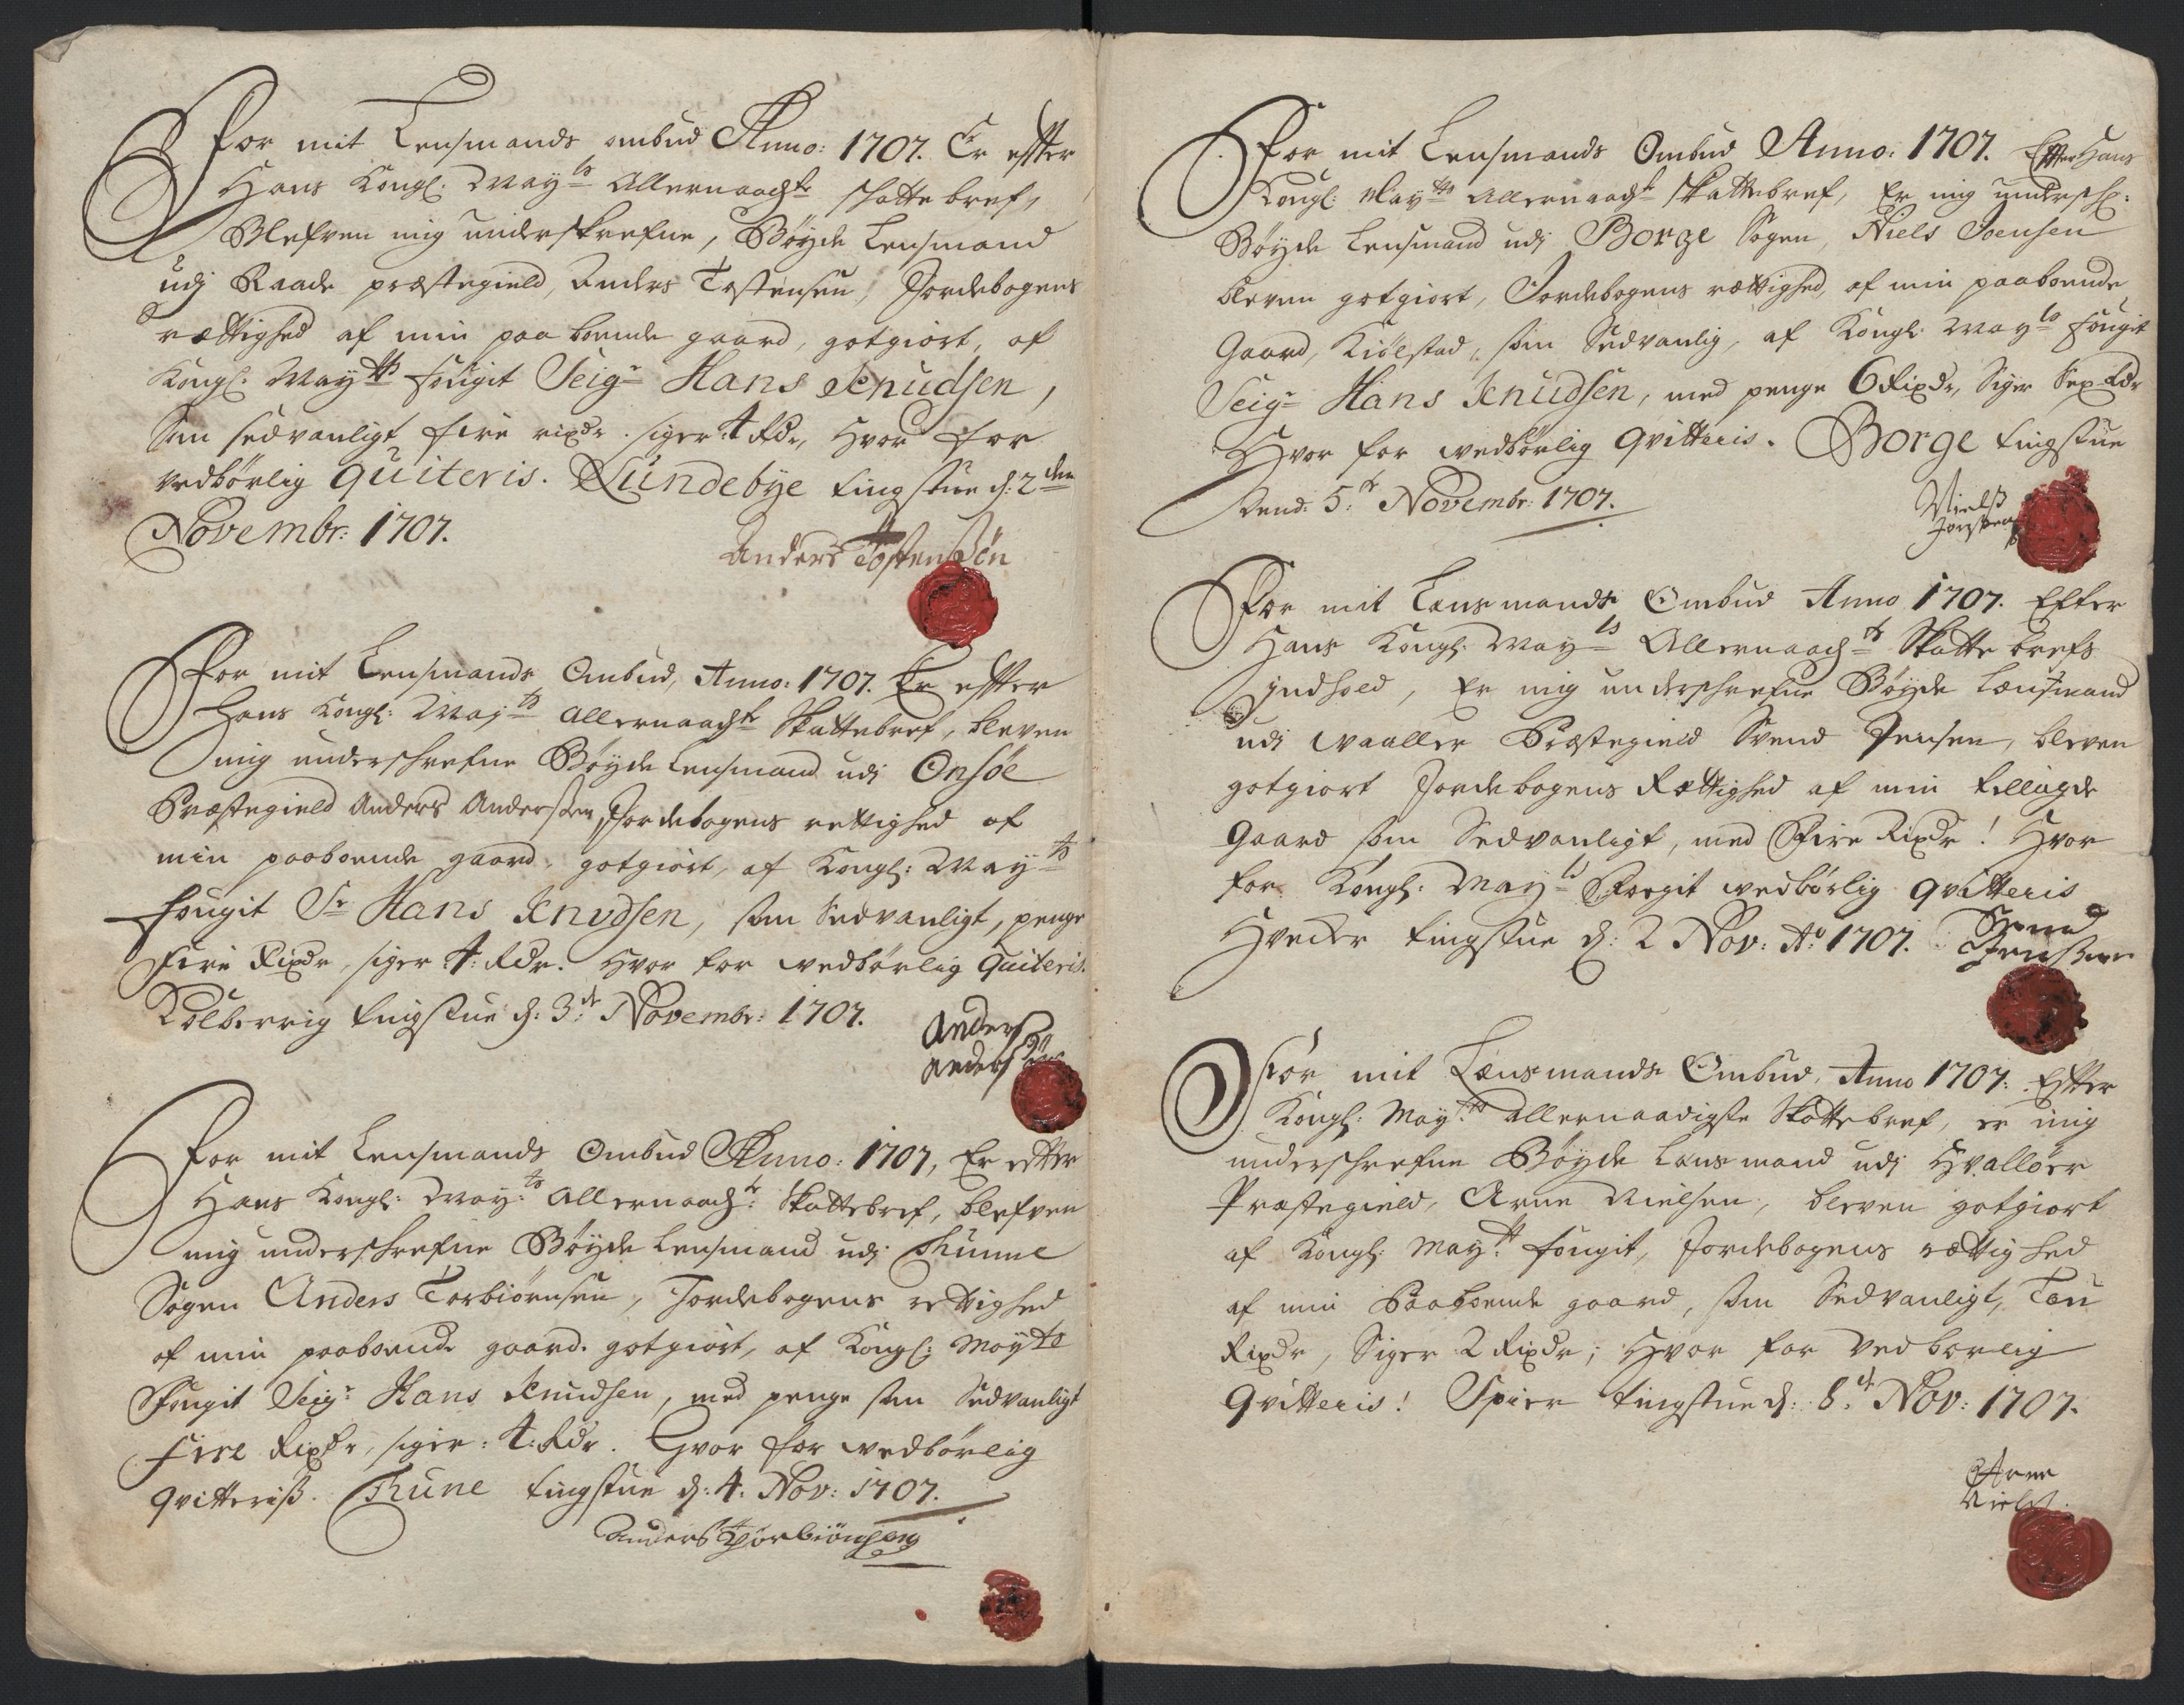 For mit Lensmands ombud Anno: 1707. Er effter
Hans Kongl: May:ts Allernaadste skatte bref,
Blefven mig underskrefne, Böyde Lensmand
udj Raade præstegield, Anders Tostensen, Jordebogens
rættighed af min paa boende gaard, gotgiort, af
Kongl: May:tts fougit Seig:r Hans Knudsen,
som sedvanligt fire rixdr. siger 4 Rdr, Hvor for
vedbörlig quiteris. Lundebye tingstue d: 2den
Novembr: 1707.
Anders Tostensön
For mit Lensmands Ombud, Anno: 1707. Er effter
Hans Kongl: May:ts Allernaadste Skattebref, bleven
mig underschrefne Böyde Lensmand udj Onsöe
Præstegield Anders Andersen, Jordebogens rettighed af
min paaboende gaard, gotgiort, af Kongl: May:ts
fougit Sr Hans Knudsen, som Sedvanligt, penge
Fire Rixdr, siger 4: Rdr. Hvor for vedbörlig Quiteris.
Kolberrig tingstue d: 3:de Novembr: 1707.
Anders
Anders
For mit Lensmands Ombud Anno: 1707, Er effter
Hans Kongl: May:ts Allernaad:ste Skattebref, blefven
mig underschrefne Böyde Lensmand udj Thunne
Sogen Anders Torbiörnsen, Jordebogens rettighed
af min paaboende gaard. gotgiort, af Kongl: Mayts
Fougit Seig:r Hans Knudsen, med penge som Sedvanligt
Fire Rixdr, siger: 4: Rdr. Hvor for vedbörlig
qvitteriß. Thune tingstue d: 4: Nov: 1707.
Anders Thorbiönsen
For mit Lensmands Ombud Anno: 1707. Effter Hans
Kongl: May:tts Allernaadste Skattebref, Er mig undersch:
Böyde Lensmand udj Borge Sogen, Niels Joensen
bleven gotgiort, Jordebogens rættighed, af min paaboende
Gaard, Kiölstad, som Sedvanlig, af Kongl: May:ts fougit
Seig:r Hans Knudsen, med penge 6 Rixdr, Siger Sex Rdr
Hvor for vedbörlig qvitteris. Borge tingstue
Dend: 5:te Novembr: 1707.
Nielß
Jonsen
For mit Lænsmands Ombud Anno 1707. Efter
Hans Kongl: May:ts Allernaad:ste Skatte brefs
jndhold, Er mig underschrefne Böyde Lænsmand
udi Waaller Præstegield Svend Jensen, bleven
gotgiort Jordebogens Rættighed af min tillagde
Gaard som Sedvanligt, med Fire Rixdr! Hvor
for Kongl: May:ts Foegit vedbörlig qvitteris
Hveder tingstue d: 2 Nov: Ao 1707.
Svend
Jenßen
For mit Lænsmands Ombud, Anno 1707: Effter
Kongl: May:tts allernaadigste Skattebref, er mig
underschrefne Böyde Lænsmand udj Hvallöer
Præstegield, Arne Nielsen, bleven gotgiort
af Kongl: May:tt fougit, Jordebogens rættighed
af min Paaboende gaard, som Sedvanligt, Toe
Rixdr, Siger 2 Rixdr; Hvor for Vedbörlig
qvitteris! Spier tingstue d: 8:de Nov: 1707.
Arne
Nielß: